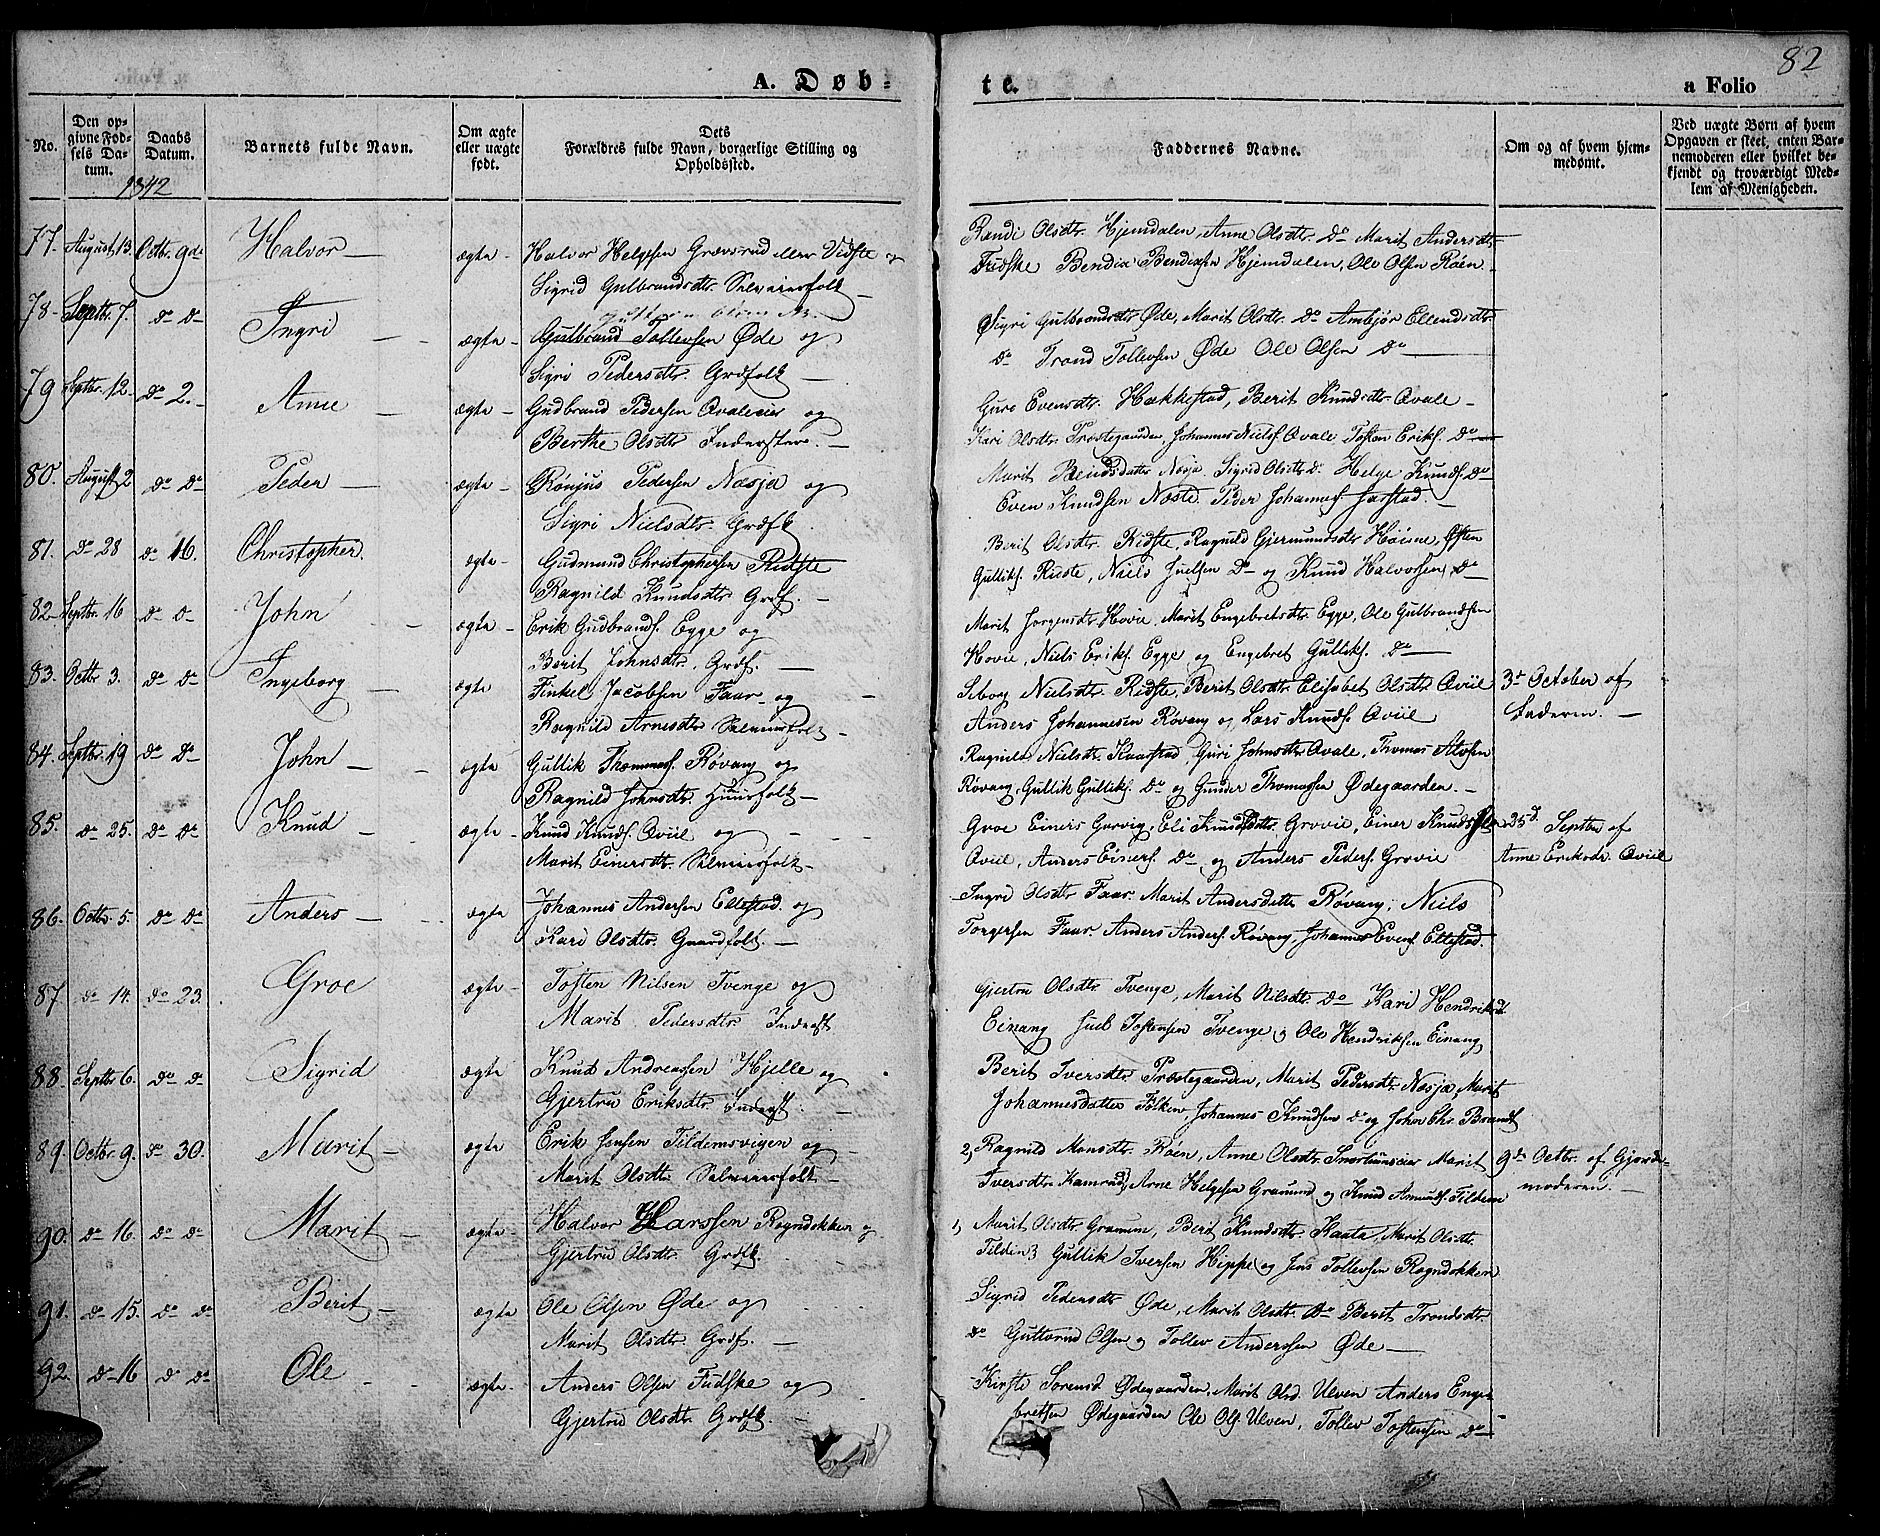 82
A. Døb-
te.
a Folio
No.
Den op-
givne Fød-
sels Da-
tum.
Daabs
Datum.
Barnets fulde Navn.
Om ægte
eller uægte
født.
Dets
Forældres fulde Navn, borgerlige Stilling og
Opholdssted.
Faddernes Navne.
Om og af hvem hjem-
medømt.
Ved uægte Børn af hvem
Opgaven er skeet, enten Bar-
nemoderen eller hvilket be-
kjendt og troværdigt Med-
lem af Menigheden.
1842
77. August 13. Octbr. 9de Halvor — ægte Halvor Helgesen eller Vidste og
Sigrid Gulbrandsdtr. Selveierfolk —
Randi Olsdtr. Hjemdalen, Anne Olsdtr. Do Marit Andersdtr.
Fudske Bendix Bendixsen Hjemdalen, Ole Olsen Röen.
78. Septbr. 7. do do Ingri — ægte — Gulbrand Tollevsen Øde og
Sigri Pedersdtr. Gdfolk —
Sigri Gulbrandsdtr Øde, Marit Olsdtr. Do Ambjør Ellendsdtr.
do Trond Tollevsen Øde Ole Olsen do —
79 Septbr. 12. do 2. Anne — ægte — Gudbrand Pedersen Qvaleeier og
Berthe Olsdtr. Inderster. —
Guro Evensdtr. Hakkestad, Berit Knudsdtr. Qvale —
Kari Olsdtr. Præstegaarden, Johannes Nielss. Qvale Tosten Eriks. do
80. August 2 do do Peder — ægte — Pedersen Næsja og
Sigri Nielsdtr. Grdfk.
Marit Bendsdatter Næsja Sigrid Olsdtr. do Helge Knuds. do
Even Knudsen Næste Peder Johannes. Jarstad —
81. do 28 do 16. Christopher. ægte — Gudmund Christophersen Ridste
Ragnild Knudsdtr. Grdf. —
Berit Olsdtr. Ridste, Ragnild Gjermundsdtr Höine, Østen
Gulliks. Ridste, Niels Juelsen Do og Knud Halvorsen, do
82. Septbr. 16 do do John — ægte — Erik Gudbrands. Egge og
Berit Johnsdtr. Grdf. —
Marit Jorgensdtr Hovie, Marit Engebretsdtr. Egge, Ole Gulbrandsen
Hovie, Niels Eriks. Egge og Engebret Gulliks. do —
83. Octbr 3. do do Ingeborg — ægte Finkel Jacobsen Faar og
Ragnild Arnesdtr Selveierfolk —
Siborg Nielsdtr. Ridste, Berit Olsdtr Elisabet Olsdtr Qviil
Anders Johannesen Røvang og Lars Knuds. Qviil
3de October af
Faderen. —
84. Septbr 19 do do John — ægte Gullik Thommes. Røvang og
Ragnild Johnsdtr. Huusfolk —
Ragnild Nielsdtr Kaastad, Guri Johnsdtr Qvale, Thomas
Røvang, Gullik Gulliks. do og Gunder Thomassen Ødegaarden. —
85. do 25. do do Knud — ægte — Knud Knuds. Qviil og
Marit Einersdtr. Selveierfolk —
Groe Einers Garvig, Eli Knudsdtr. Grovie, Einer Knudsen
Qviil, Anders Einers. do og Anders Peders. Grovie
25d. Septbr af
Anne Eriksdr. Qviil
86. Octbr. 5. do do Anders — ægte Johannes Andersen Ellestad og
Kari Olsdtr. Gaardfolk. —
Ingri Olsdtr. Faar Marit Andersdatter Røvang, Niels
Torgersen Faar Anders Anders. Røvang, Johannes Evens. Ellestad.
87. do 14. do 23. Groe ægte — Tosten Nilsen Tvenge og
Marit Pedersdtr. Inderst
Gjertru Olsdtr. Tvenge, Marit Nilsdtr. do Kari Hendriksdt
Einang Juel Tostensen Tvenge og Ole Hendriksen Einang
88. Septbr 6. do do Sigrid ægte Knud Andreassen Hjelle og
Gjertru Eriksdtr. Inderst. —
Berit Iversdtr. Præstegaarden, Marit Pedersdtr. Næsja, Marit
Johannesdatter Folken, Johannes Knudsen do og John Chr. Brandt
89. Octbr 9. do 30. Marit — ægte Erik Jensen Tildemsvigen og
Marit Olsdtr. Selveierfolk —
2, Ragnild Monsdtr. Röen, Anne Olsdtr. Marit
Iversdtr. Kamrud, Arne Helgesen Gramund og Knud Amunds. Tildem
9de Octbr. af Gjorde-
moderen. —
90. do 16. do do Marit — ægte Halvor Larssen Rogndokken og
Gjertru Olsdtr. Grdfk.
1, Marit Olsdtr. Gramum, Berit Knudsdtr. Kaata, Marit Olsdt.
Tilden, Gullik Iversen Hippe og Jens Tollevsen Rogndokken
91. do 15. do do Berit — ægte Ole Olsen Øde og
Marit Olsdtr Grdf. —
Sigrid Pedersdtr Øde, Marit Olsdtr. do Berit Trondsdtr.
do Guttorm Olsen og Tollev Anderssen Øde —
92. do 16 do do Ole — ægte — Anders Olsen Fudske og
Gjertru Olsdtr. Grdfk. —
Kirste Sorensd Ødegaarden, Marit Olsd. Ulven Anders Enge-
bretsen Ødegaarden Ole Ols. Ulven, Tollev Tostensen do